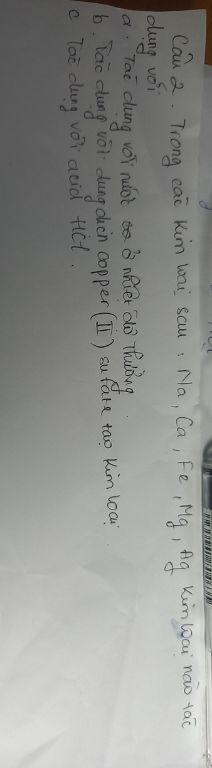 Câu 2. Trong các kim loại sau: Na, Ca, Fe, Mg, Ag kim loại nào tác
dụng với
a. Tác dụng với nước ở nhiệt độ thường.
b. Tác dụng với dung dịch copper (II) sulfate tạo kim loại.
c Tác dụng với acid HCl.